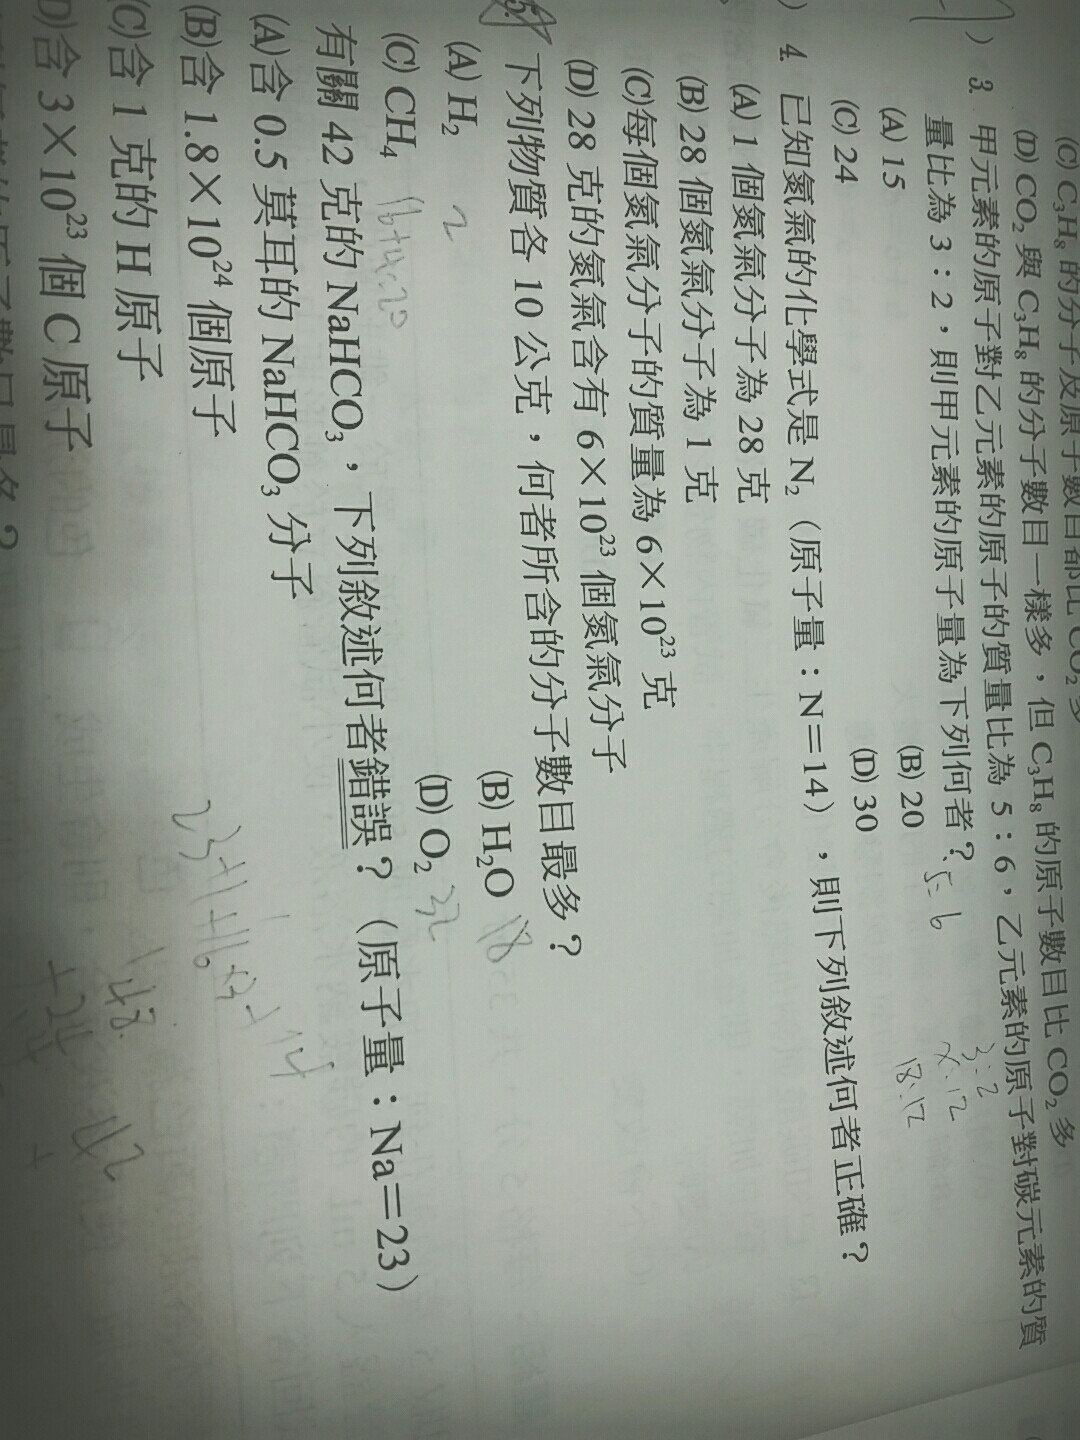 (C) C₃H₈ 的分子及原子數目都比 CO₂ 多
(D) CO₂ 與 C₃H₈ 的分子數目一樣多，但 C₃H₈ 的原子數目比 CO₂ 多
) 3. 甲元素的原子對乙元素的原子的質量比為 5：6，乙元素的原子對碳元素的質
量比為 3：2，則甲元素的原子量為下列何者？ 5:6 3:2
x:12
(A) 15 (B) 20 18:12
(C) 24 (D) 30
) 4. 已知氮氣的化學式是 N₂（原子量：N＝14），則下列敘述何者正確？
(A) 1 個氮氣分子為 28 克
(B) 28 個氮氣分子為 1 克
(C)每個氮氣分子的質量為 6×10²³ 克
(D) 28 克的氮氣含有 6×10²³ 個氮氣分子
5. 下列物質各 10 公克，何者所含的分子數目最多？
(A) H₂ 2 (B) H₂O 18
(C) CH₄ (D) O₂ 32
有關 42 克的 NaHCO₃，下列敘述何者錯誤？（原子量：Na＝23）
(A)含 0.5 莫耳的 NaHCO₃ 分子
(B)含 1.8×10²⁴ 個原子
(C)含 1 克的 H 原子
D)含 3×10²³ 個 C 原子